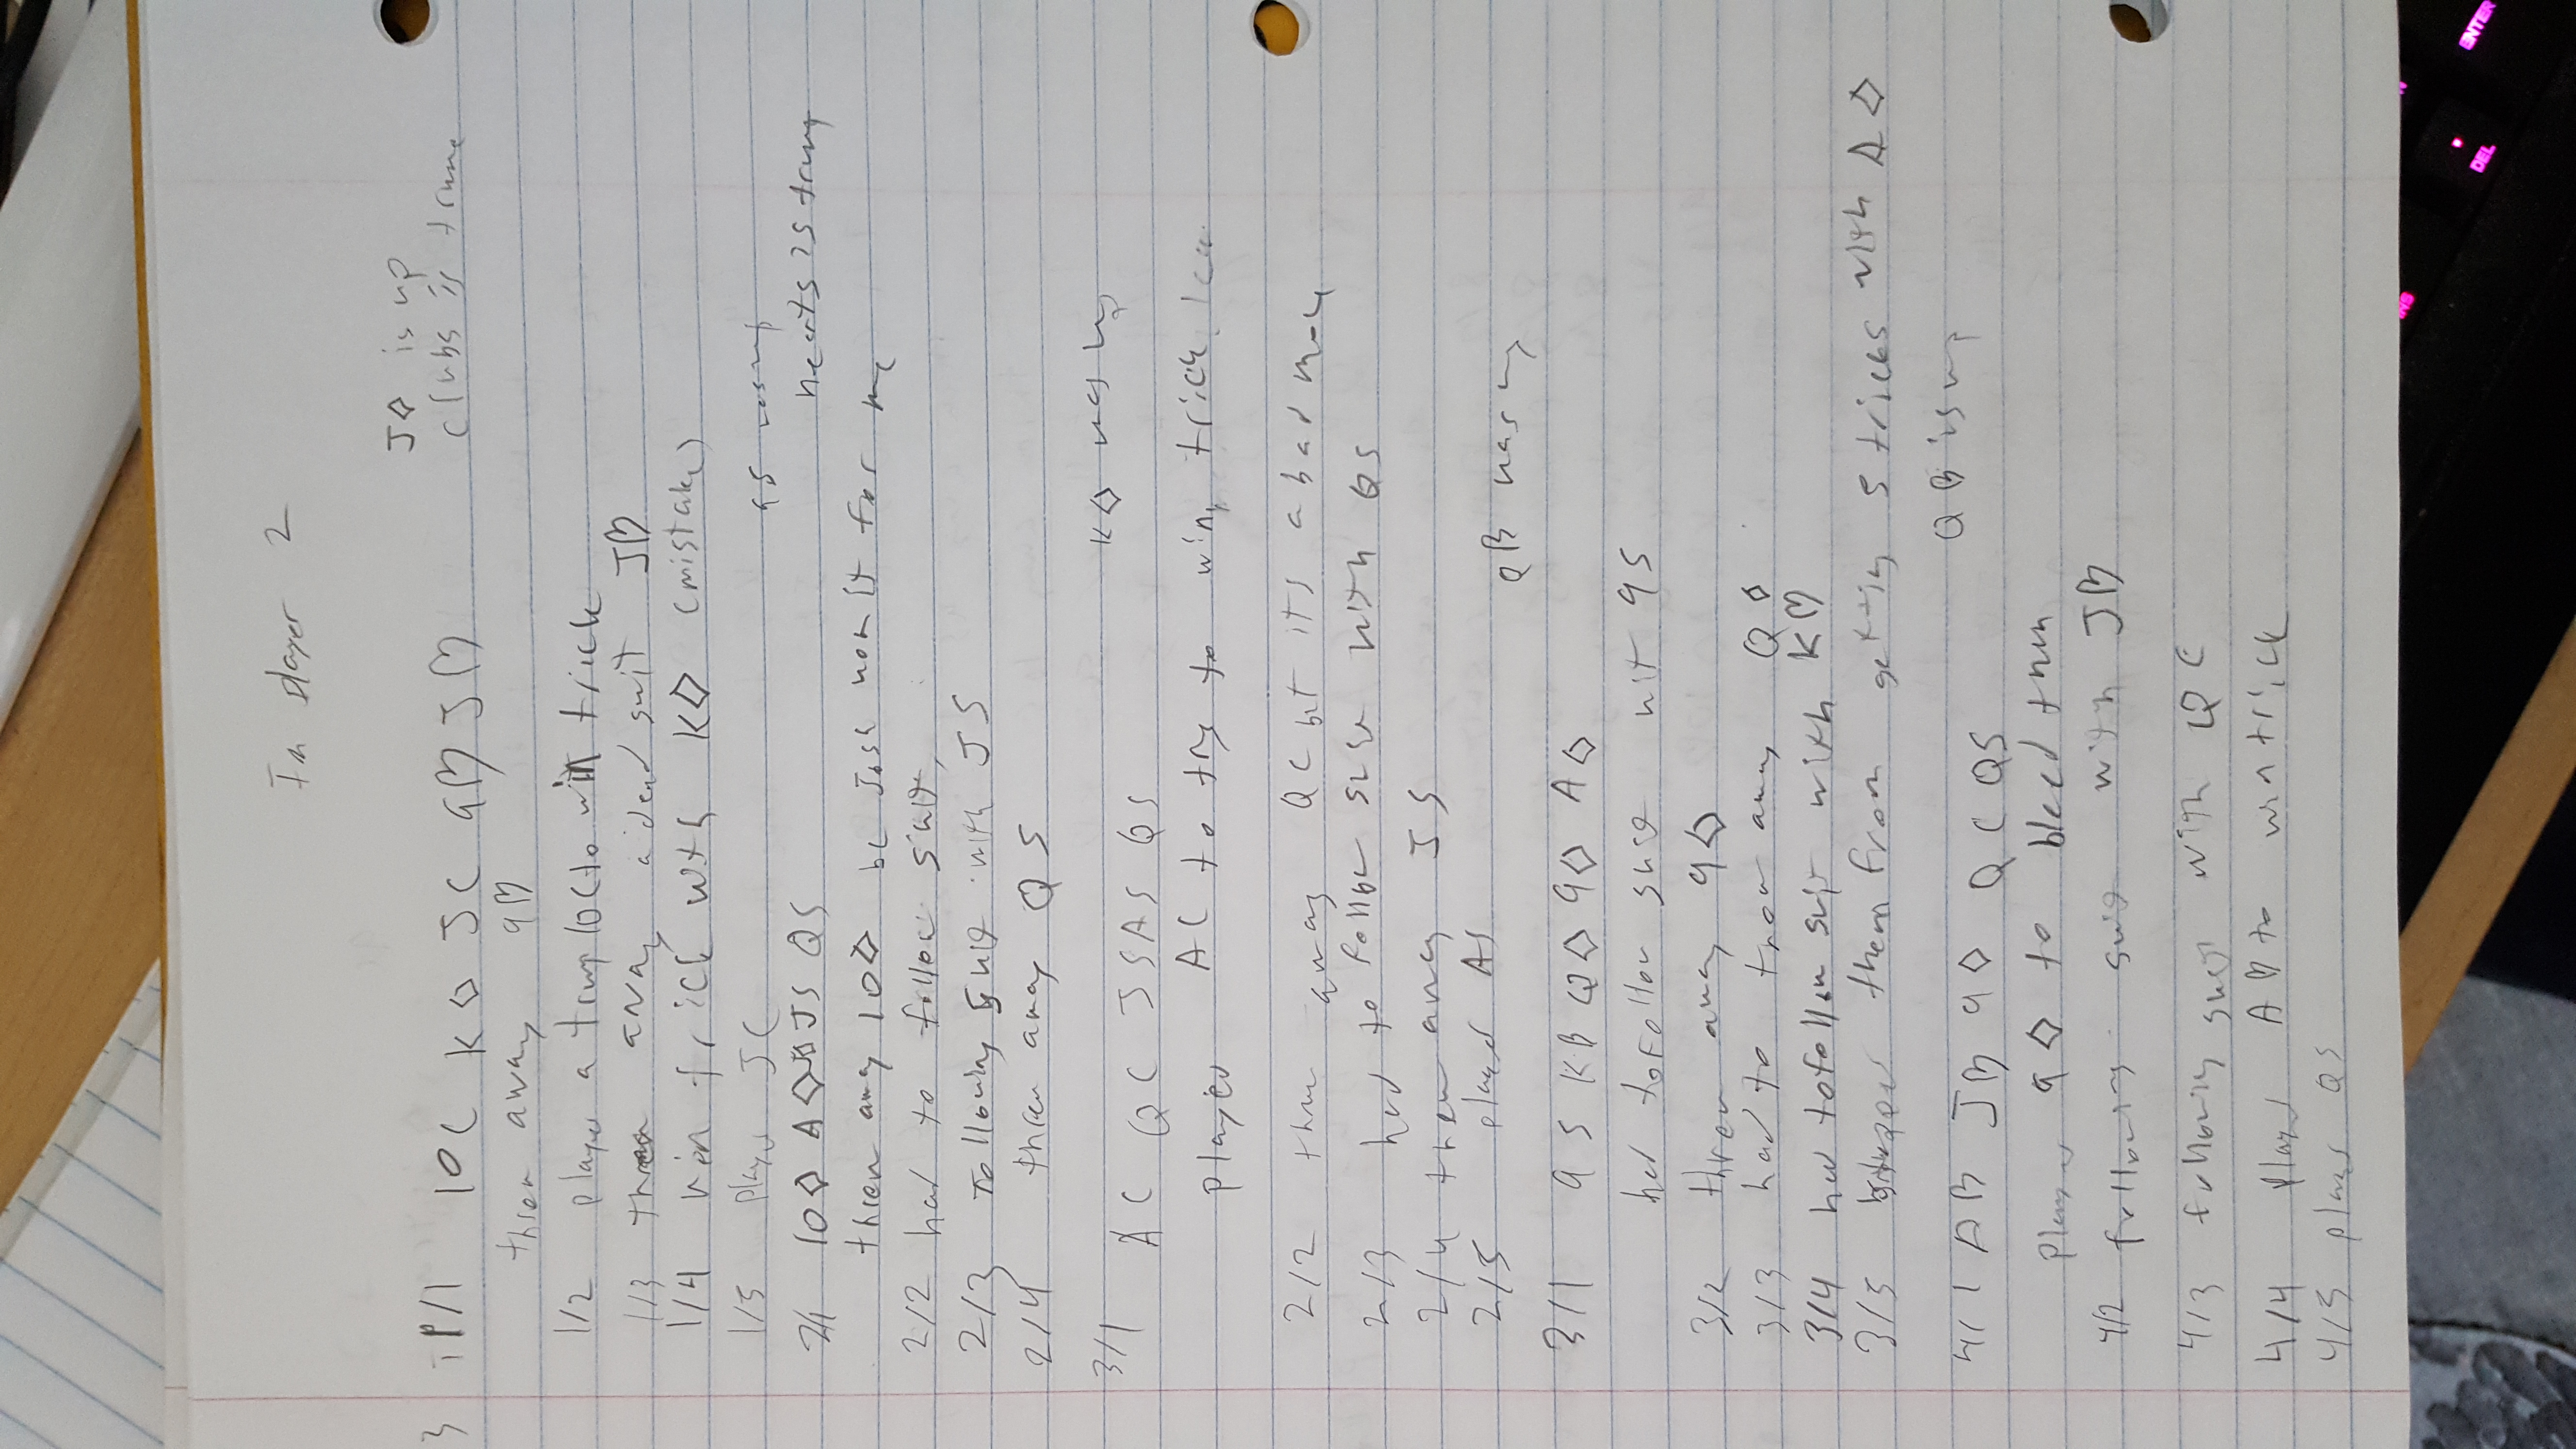 Im player 2
J♢ is up
clubs is trump
3 1/1 10C K♢ JC 9♡ J♡
threw away 9♡
1/2 played a trump 10C to win trick
1/3 threw away a dead suit J♡
1/4 win trick with K♢ (mistake)
1/5 played JC
9S was up
hearts is trump
2/1 10♢ A♢ JS QS
threw away 10♢ bc Josh won it for me
2/2 had to follow suit,
2/3 following suit with JS
2/4 threw away QS
K♢ was up
3/1 AC QC JS AS QS
played AC to try to win trick
2/2 threw away QC but its a bad move
2/3 had to follow suit with QS
2/4 threw away JS
2/5 played AS
Q♡ was up
3/1 9S K♡ Q♢ 9♢ A♢
had to follow suit wit 9S
3/2 threw away 9♢
3/3 had to throw away Q♢
3/4 had to follow suit with K♡
3/5 stopped them from getting 5 tricks with A♢
Q♡ is up
4/1 A♡ J♡ 9♢ QC QS
played 9♢ to bleed trum
4/2 following suit with J♡
4/3 following suit with QC
4/4 played A♡ to win trick
4/5 played QS
DEL
ENTER